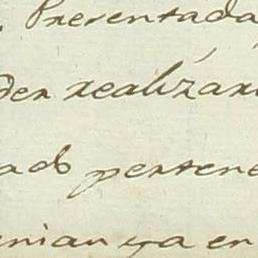 . Presentada
der realizár
ado pertene
enian ya en